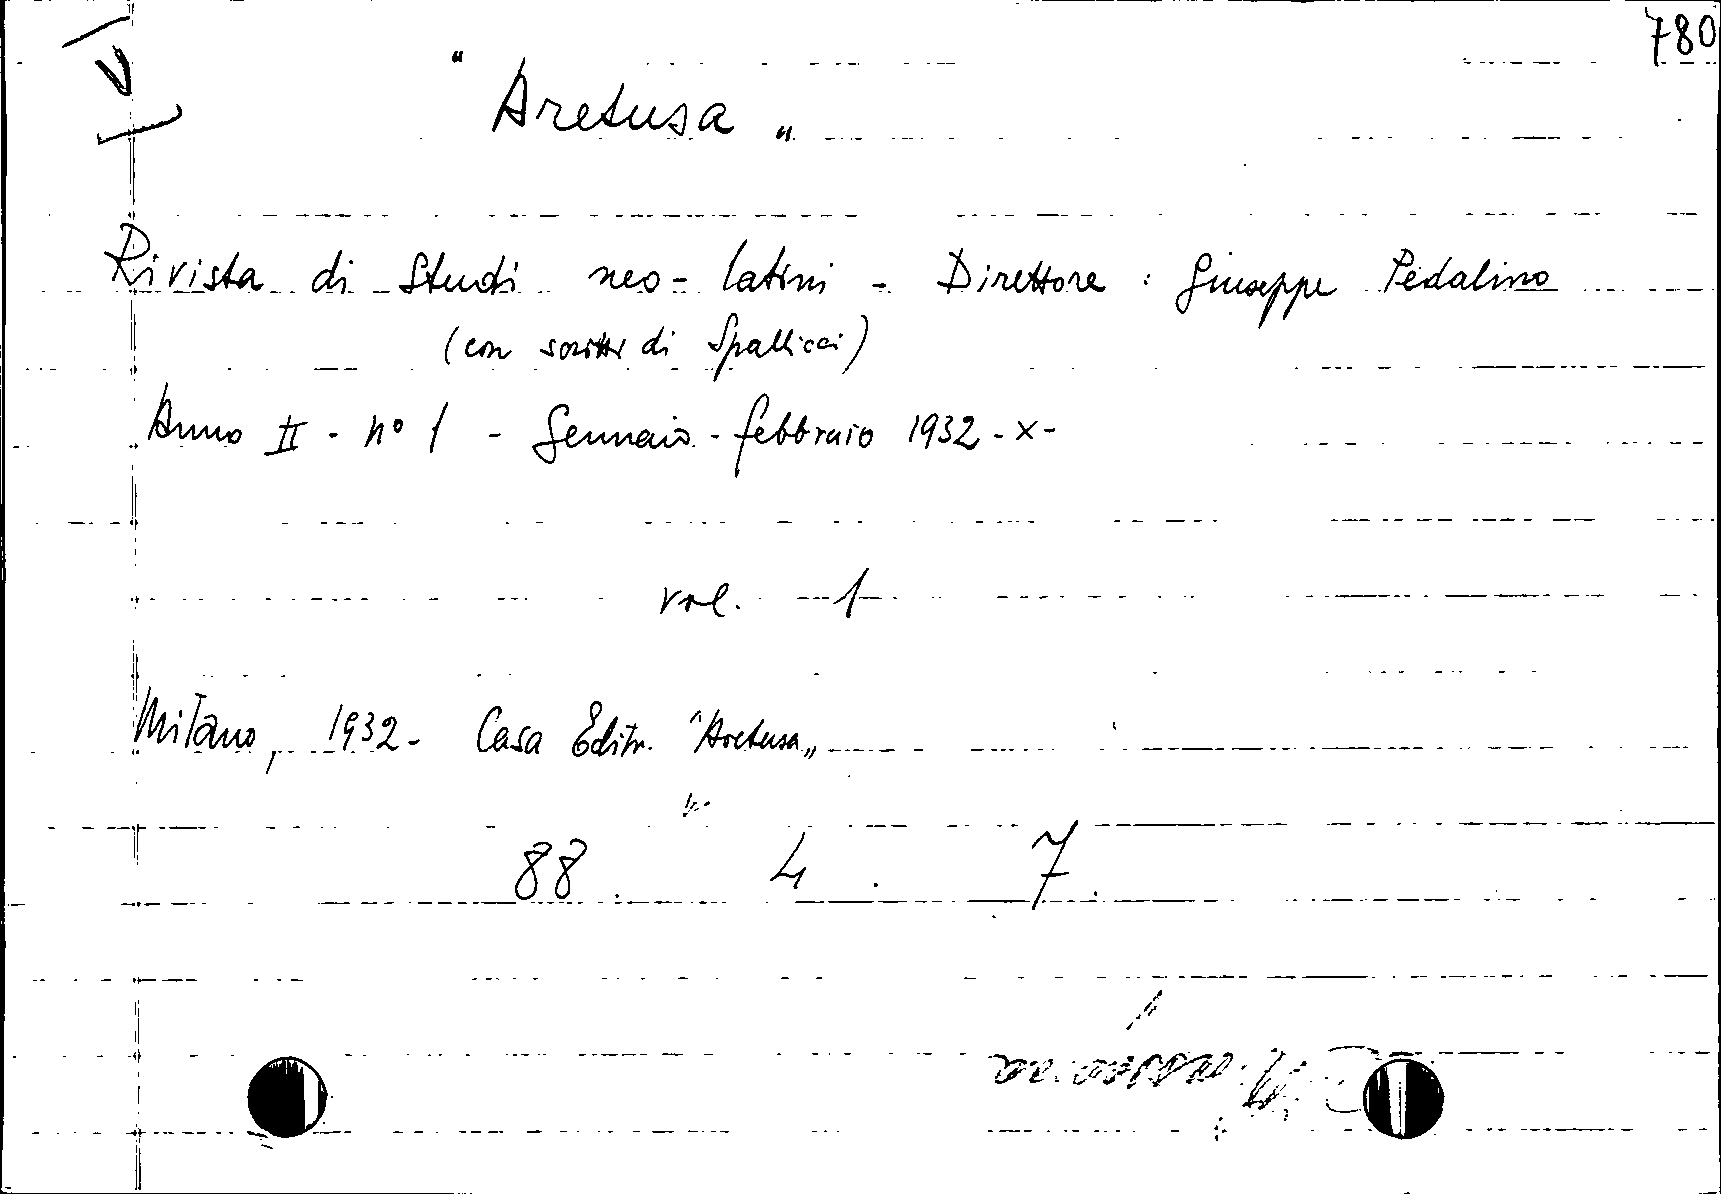 780
V
"Aretusa"
Rivista di Studi neo-latini - Direttore : Giuseppe Pedalino
(con scritti di Spallicci)
Anno II - n° 1 - Gennaio-febbraio 1932-X-
vol. 1
Milano, 1932- Casa Editr. "Aretusa"
88. 4. 7.